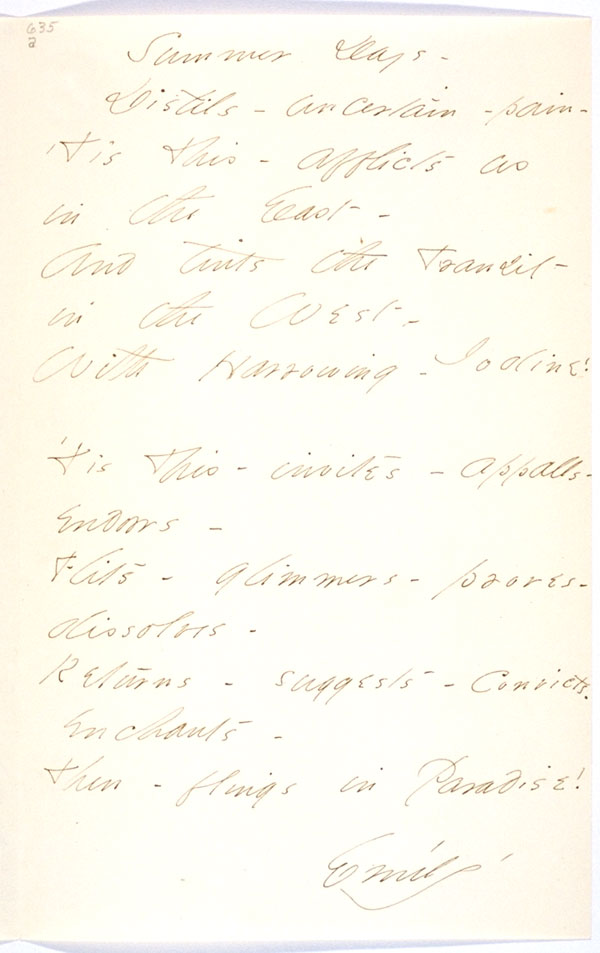 635
a
Summer Days -
Distils - uncertain - pain -
'Tis this - afflicts us
in the East -
And tints the Transit -
in the West -
With Harrowing - Iodine!
'Tis this - invites - appalls -
Endows -
Flits - glimmers - proves -
dissolves -
Returns - suggests - Convicts -
Enchants -
Then - flings in Paradise!
Emily